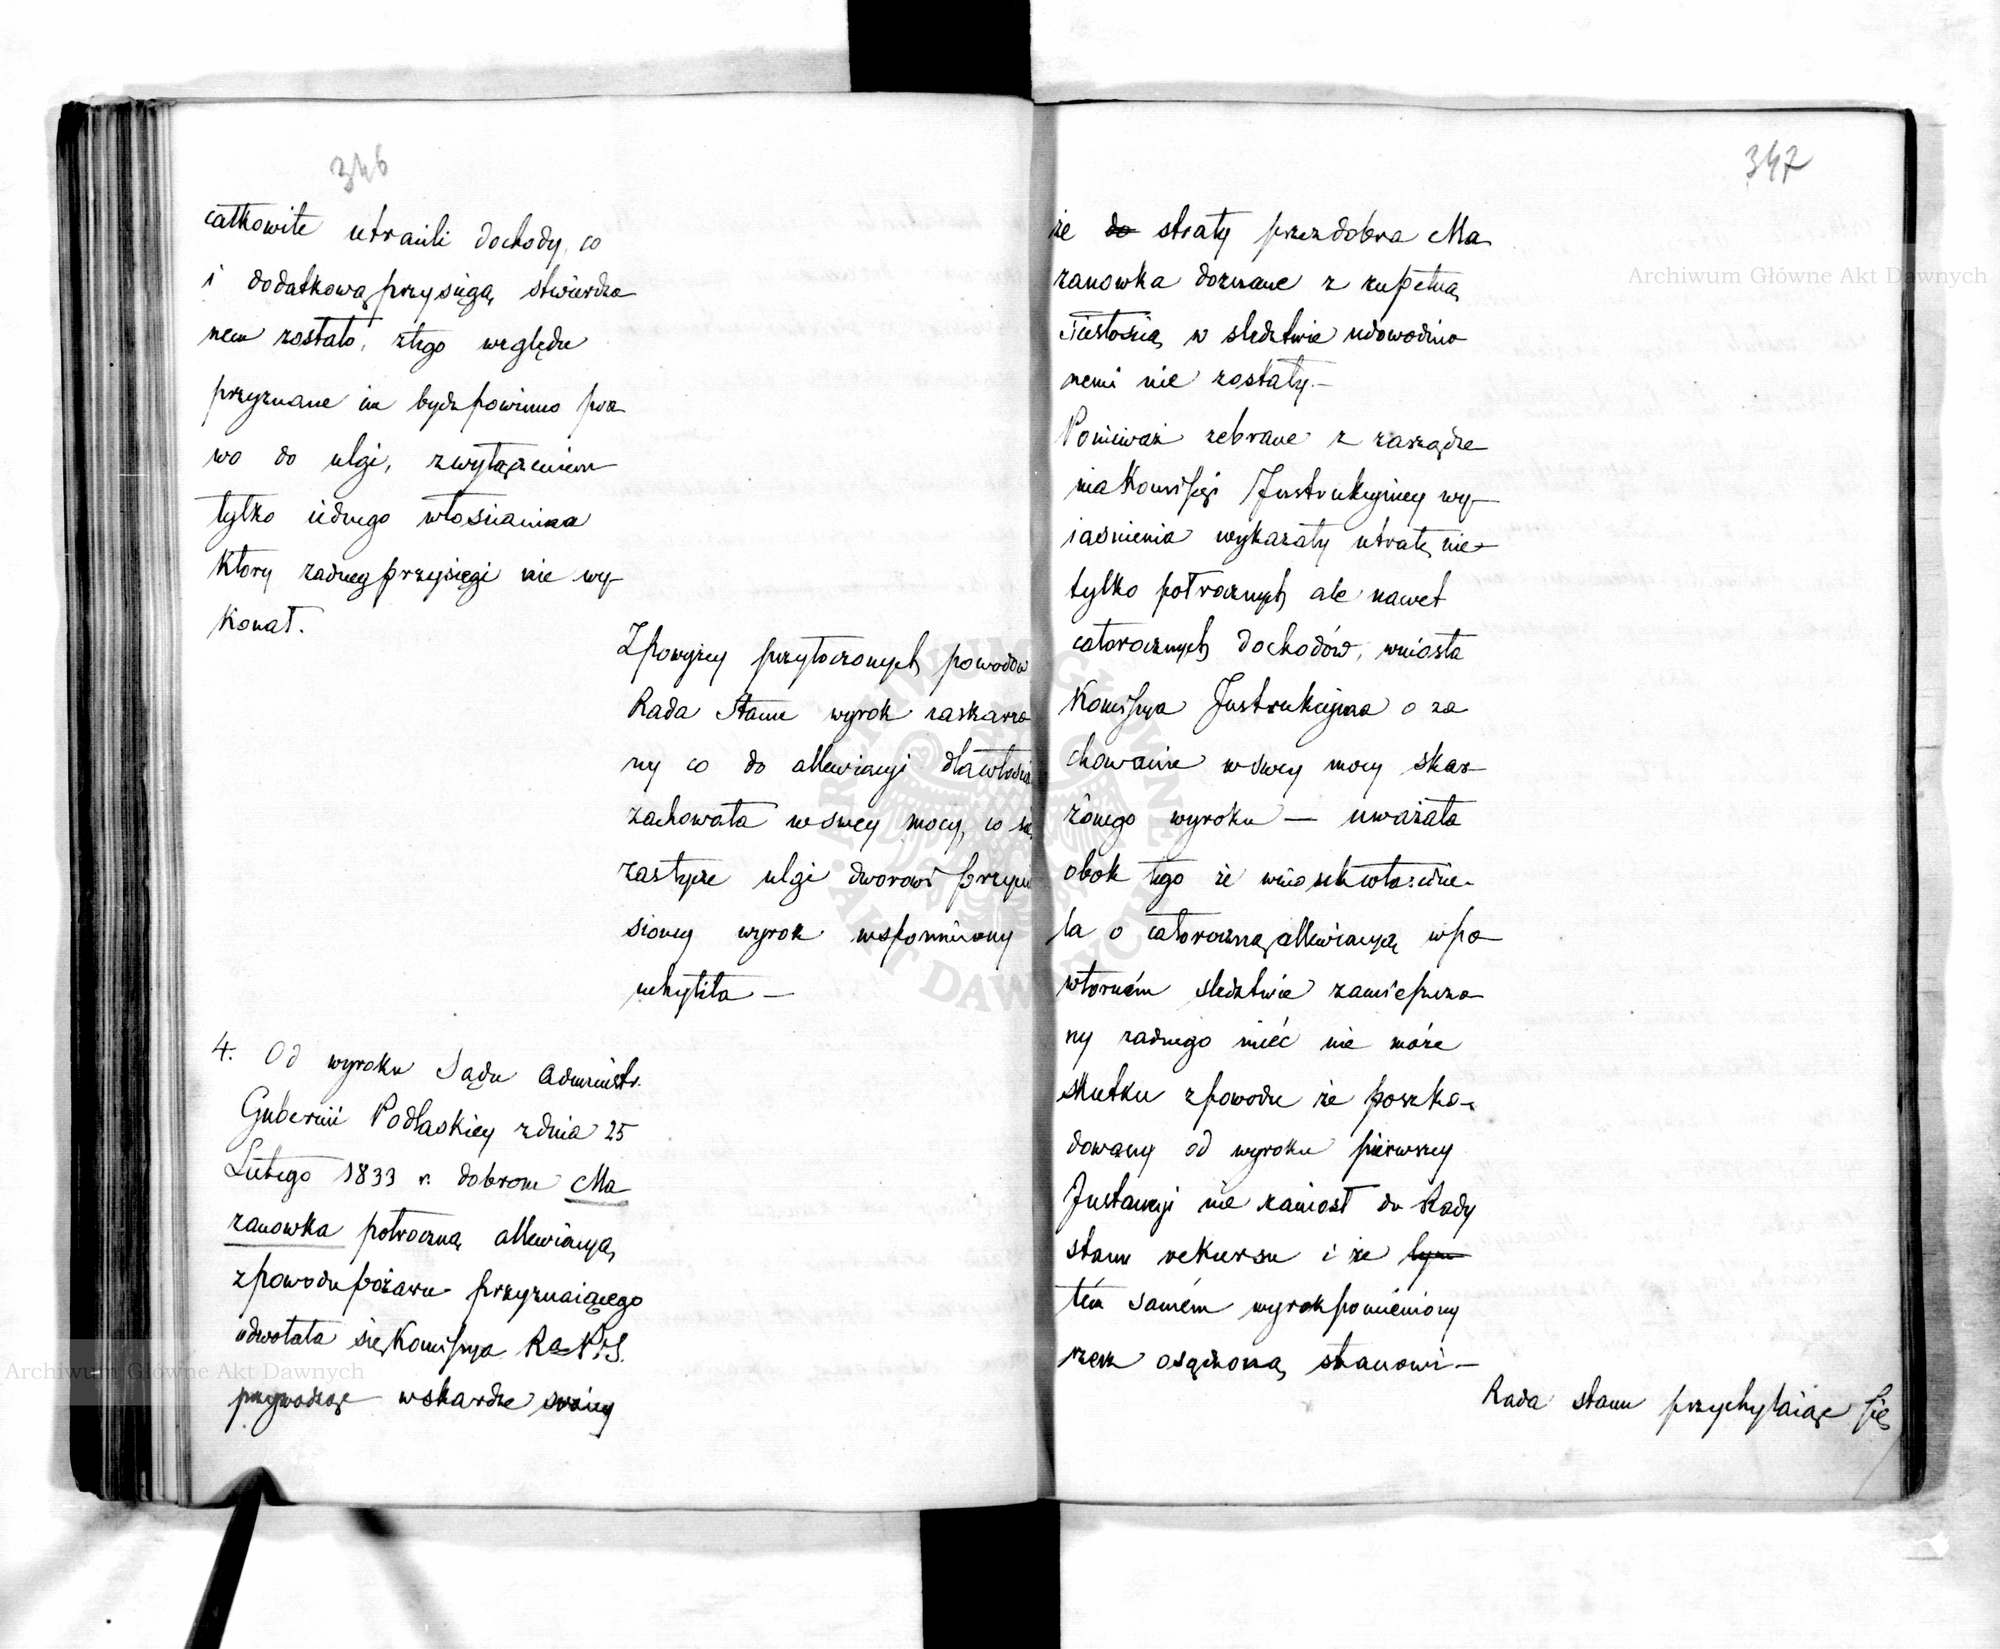 346
całkowite utracili dochody, co
i dodatkową przysięgą stwierdzo
nem zostało, ztego względu
przyznane im bydz powinno pra
wo do ulgi, zwyłączeniem
tylko iednego włościanina
który zadney przysięgi nie wy-
konał.
Zpowyżey przytoczonych powodów
Rada Stanu wyrok zaskarżo
ny co do allewiacyi dla włościa
zachowała w swey mocy, co się
zastycze ulgi dworowi przyzn
sioney wyrok wspomniony
uchyliła —
4. Od wyroku Sądu Administr.
Gubernii Podlaskiey zdnia 25
Lutego 1833 r. dobrom Ma
zanowka połroczną allewiacyą
zpowodu pożaru przyznaiącego
odwołała się Kommissya R. P. i S.
przywodząc w skardze swoiey
347
że do straty przez dobra Ma
zanowka doznane z zupełną
ścisłością w śledztwie udowodnio
nemi nie zostały.—
Ponieważ zebrane z zarządze
nia Kommissyi Instrukcyiney wy-
iaśnienia wykazały utratę nie-
tylko połrocznych ale nawet
całorocznych dochodów, wniosła
Kommissya Instrukcyina o za
chowanie w swey mocy skar-
żonego wyroku — uważała
obok tego że wniosek właście-
la o całoroczną allewiacyą w po
wtórnem śledztwie zamieszczo
ny żadnego mieć nie może
skutku zpowodu że poszko-
dowany od wyroku pierwszey
Instancyi nie zaniosł do Rady
stanu rekursu i że tym
tém samém wyrok pomieniony
rzecz osądzoną stanowi —
Rada stanu przychylaiąc się
Archiwum Główne Akt Dawnych
Archiwum Główne Akt Dawnych
ARCHIWUM GŁÓWNE AKT DAWNYCH